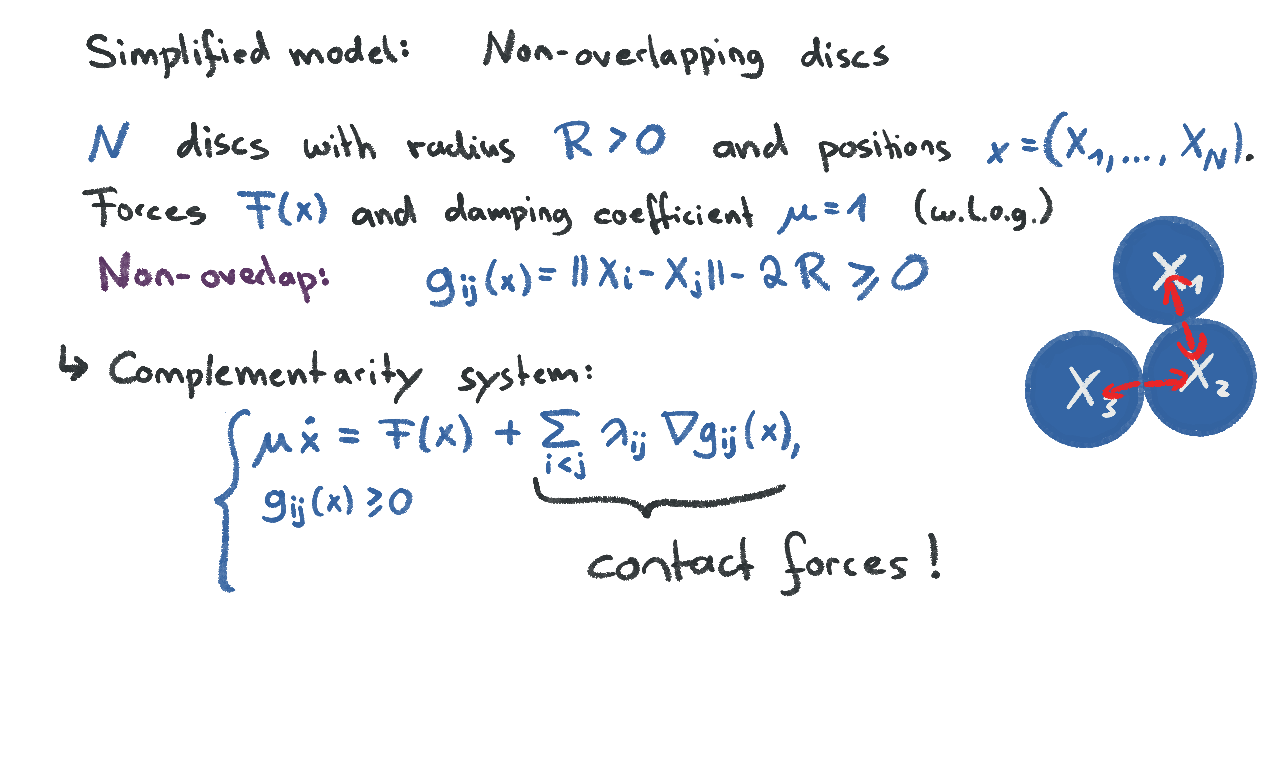 Simplified model: Non-overlapping discs
N discs with radius R > 0 and positions x = (X₁, ..., X_N).
Forces F(x) and damping coefficient μ = 1 (w.l.o.g.)
Non-overlap: g_ij(x) = ||X_i - X_j|| - 2R ⩾ 0
X₁
X₃ X₂
↳ Complementarity system:
{ μẋ = F(x) + ∑_{i<j} λ_ij ∇g_ij(x),
g_ij(x) ⩾ 0
contact forces!